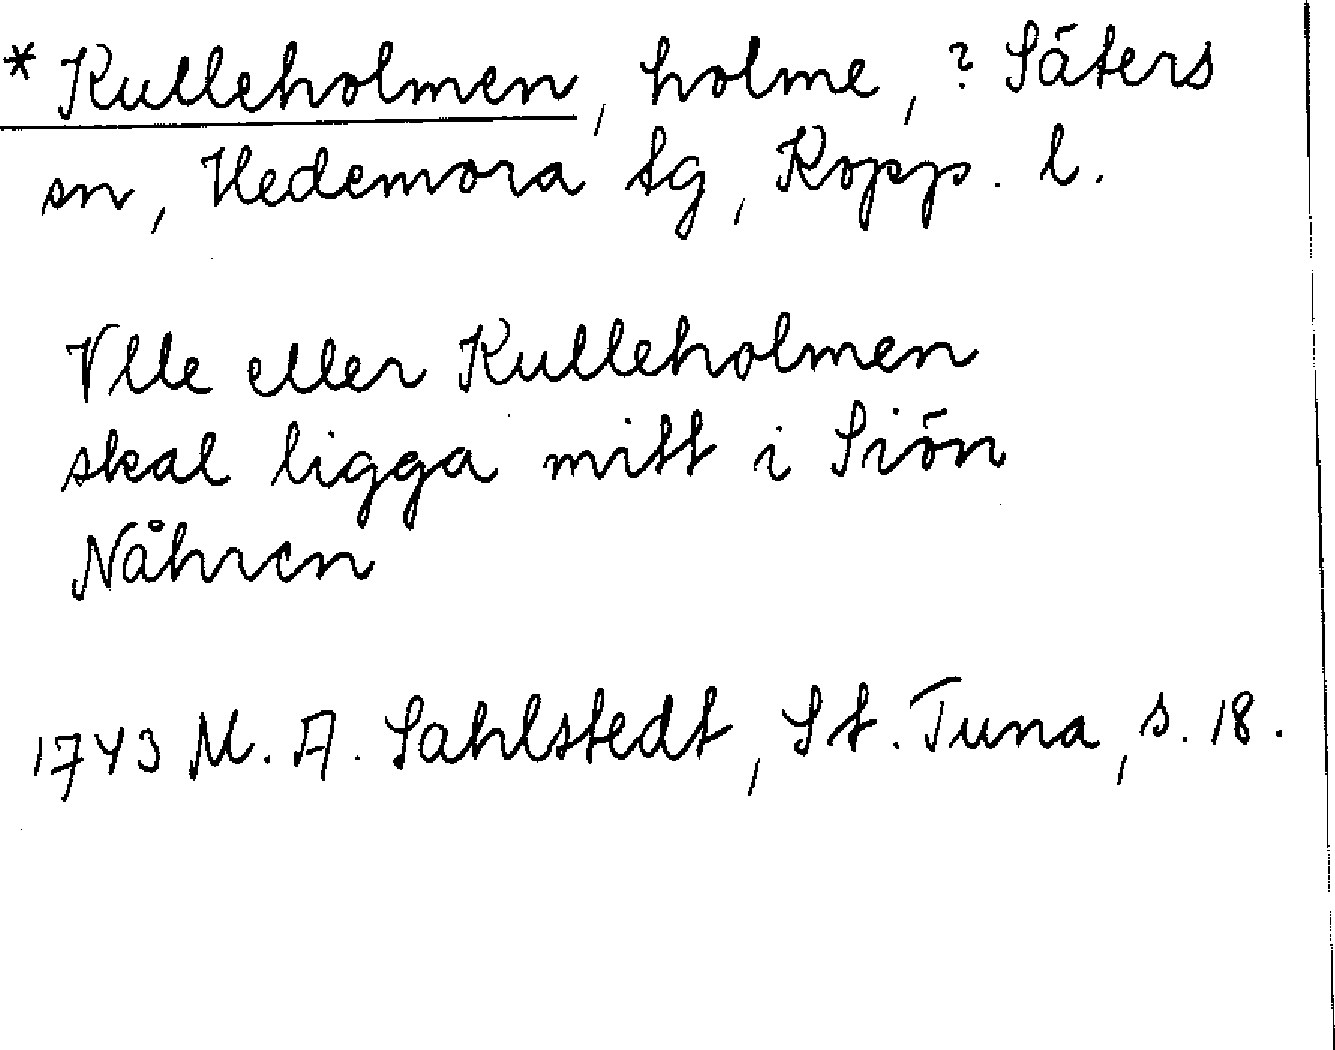 * Kulleholmen, holme, ? Säters
sn, Hedemora tg, Kopp. l.
Vlle eller Kulleholmen
skal ligga mitt i Siön
Nåhren
1743 M. A. Sahlstedt, St. Tuna, s. 18.